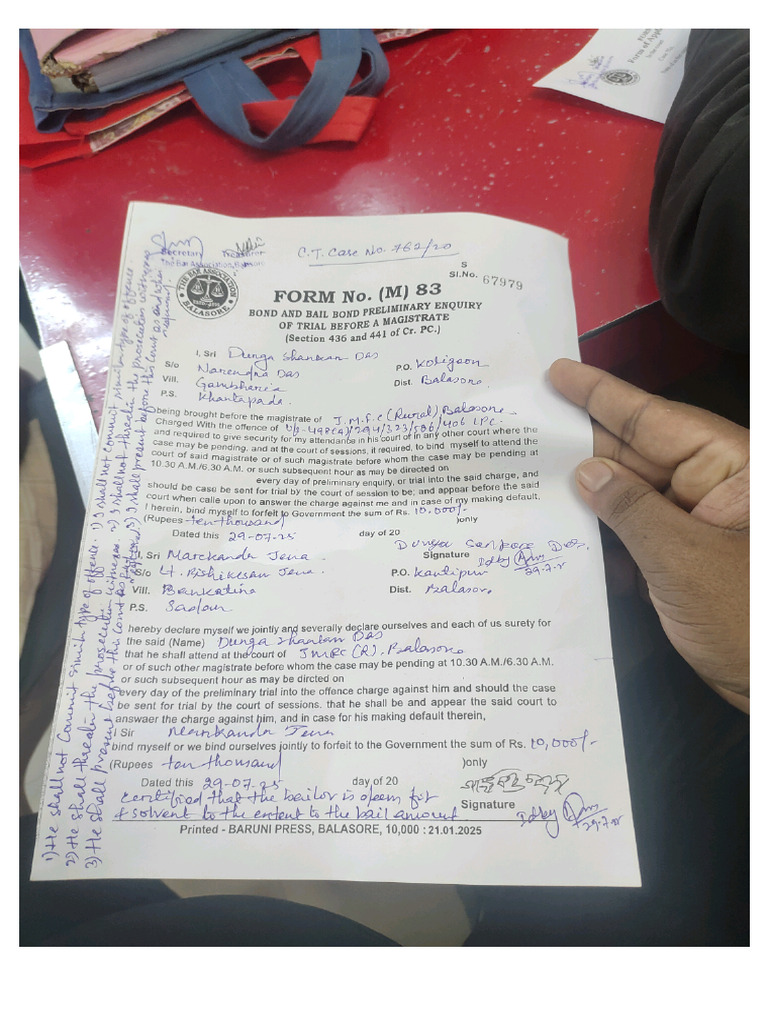 C.T. Case No. 762/20
Secretary Treasurer
The Bar Association, Balasore
THE BAR ASSOCIATION
BALASORE
S
Sl.No. 67979
FORM No. (M) 83
BOND AND BAIL BOND PRELIMINARY ENQUIRY
OF TRIAL BEFORE A MAGISTRATE
(Section 436 and 441 of Cr. PC.)
I, Sri Durga Shankar Das
S/o Narendra Das P.O. Kotigaon
Vill. Gambharia Dist. Balasore
P.S. Khantapada
being brought before the magistrate of J.M.F.C (Rural) Balasore
Charged With the offence of U/s-498(A)/294/323/506/406 IPC.
and required to give security for my attendance in his court of in any other court where the
case may be pending, and at the court of sessions, it required, to bind myself to attend the
court of said magistrate or of such magistrate before whom the case may be pending at
10.30 A.M./6.30 A.M. or such subsequent hour as may be directed on
every day of preliminary enquiry, or trial into the said charge, and
should be case be sent for trial by the court of session to be; and appear before the said
court when calle upon to answer the charge against me and in case of my making default,
I herein, bind myself to forfeit to Government the sum of Rs. 10,000/-
(Rupees ten thousand )only
Dated this 29-07-25 day of 20
Durga Sankar Das
Signature
Idby
29-7-25
I, Sri Markanda Jena
S/o Lt. Rishikesan Jena P.O. Kantipur
Vill. Bankatina Dist. Balasore
P.S. Sadar
hereby declare myself we jointly and severally declare ourselves and each of us surety for
the said (Name) Durga Shankar Das
that he shall attend at the court of JMFC (R), Balasore
or of such other magistrate before whom the case may be pending at 10.30 A.M./6.30 A.M.
or such subsequent hour as may be dircted on
every day of the preliminary trial into the offence charge against him and should the case
be sent for trial by the court of sessions. that he shall be and appear the said court to
answaer the charge against him, and in case for his making default therein,
I Sir Markanda Jena
bind myself or we bind ourselves jointly to forfeit to the Government the sum of Rs. 10,000/-
(Rupees ten thousand )only
Dated this 29-07-25 day of 20
Certified that the bailor is found fit
& solvent to the extent to the bail amount
Signature
Idby
29-7-25
Printed - BARUNI PRESS, BALASORE, 10,000 : 21.01.2025
1) I shall not commit similar type of offence.
2) I shall not threaten the prosecution witnesses
3) I shall present before this Court as and when required
1) He shall not commit similar type of offence.
2) He shall threatn the prosecution witnesses.
3) He shall present before this Court as and when required
Form of